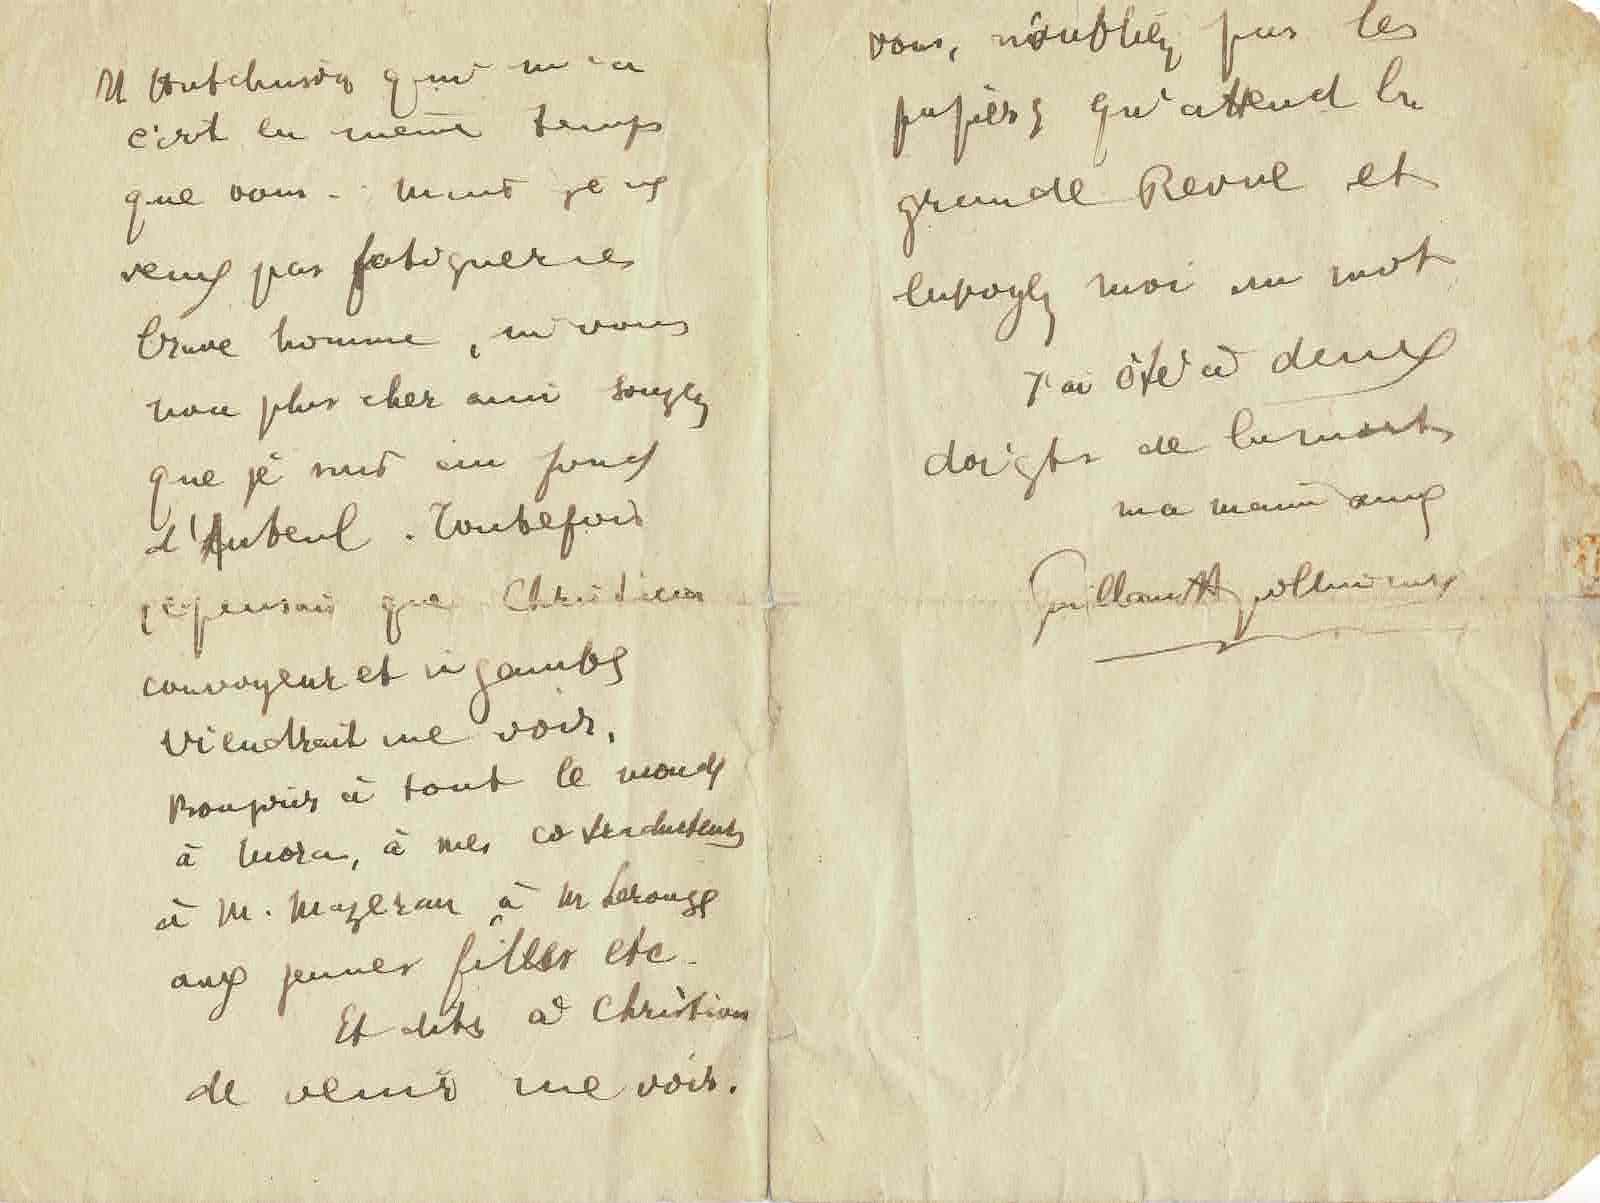 M Hutchinson qui m'a
écrit en même temps
que vous. Mais je ne
veux pas fatiguer ce
brave homme, ni vous
non plus cher ami songez
que je suis au fond
d'Auteuil. Toutefois
je pensais que Christian
convoyeur et ingambe
viendrait me voir.
Bonjour à tout le monde
à Mora, à mes cotraducteurs
à M. Mazeran à M Lerouge
aux jeunes filles etc.
Et dites à Christian
de venir me voir.
vous, n'oubliez pas les
papiers qu'attend la
grande Revue et
envoyez moi un mot
J'ai été à deux
doigts de la mort
ma main aux
Guillaume Apollinaire